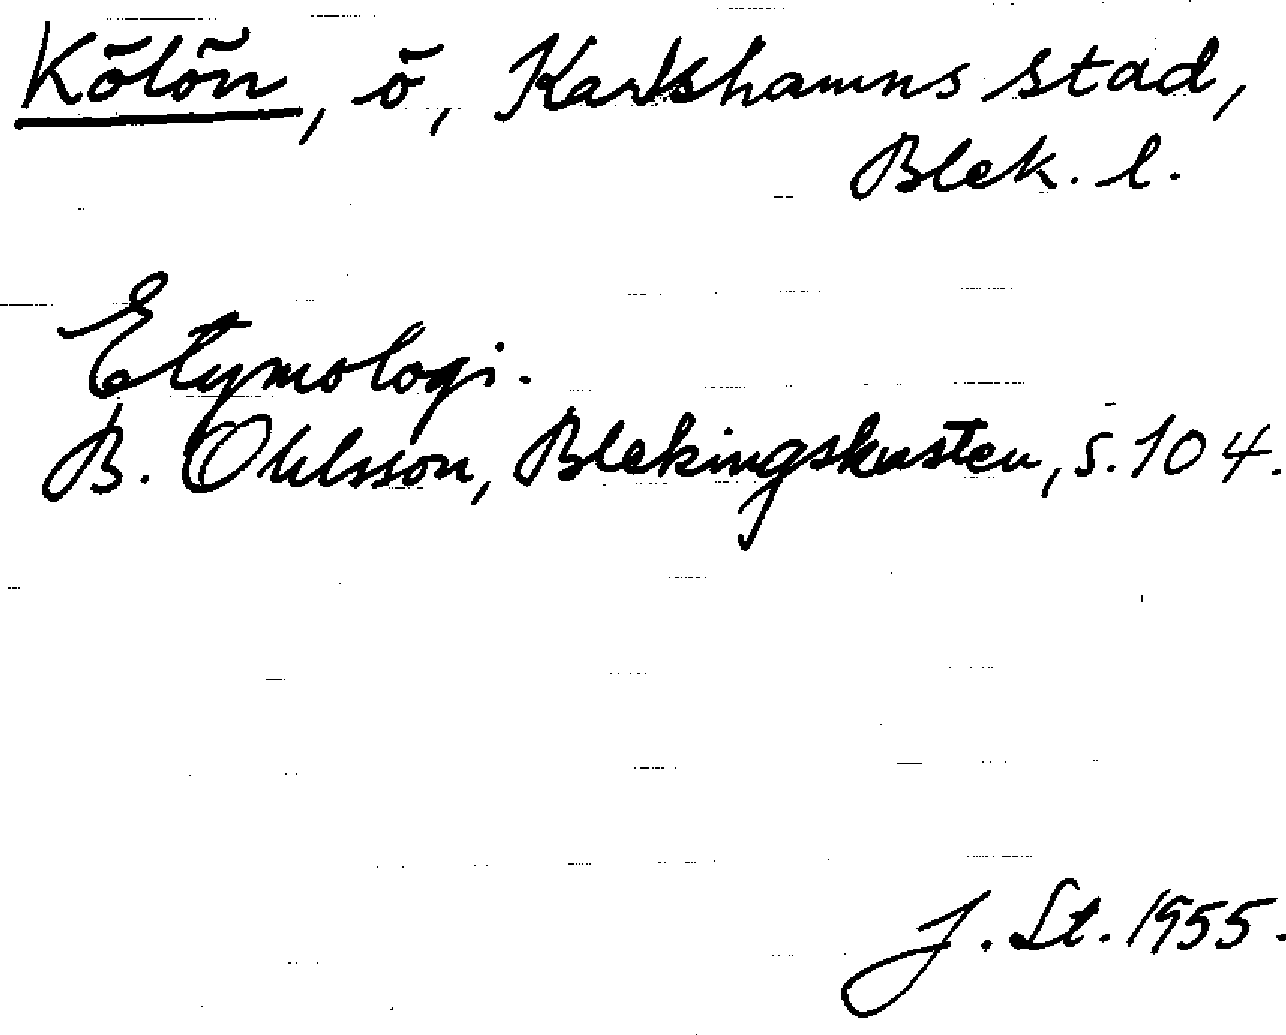 Kölön, ö, Karlshamns stad,
Blek. l.
Etymologi.
B. Ohlsson, Blekingskusten, s. 104.
J. St. 1955.